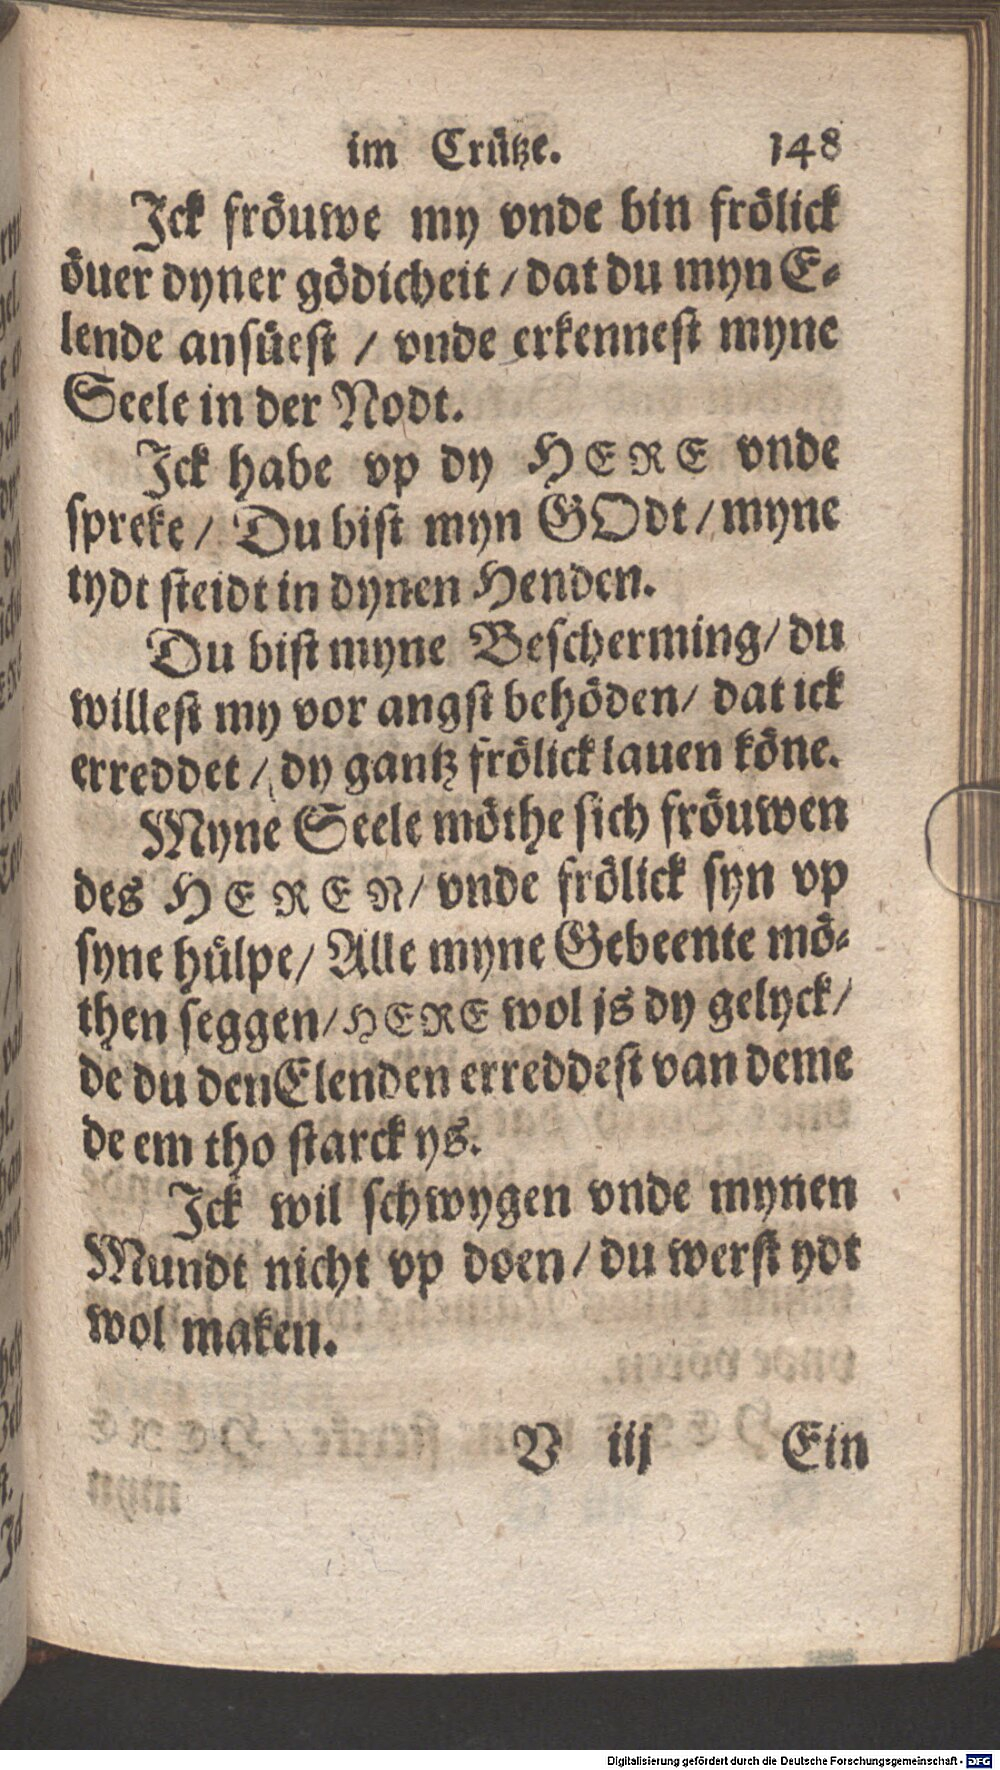 im Crütze. 148
Jck fröuwe my vnde bin frölick
öuer dyner gödicheit / dat du myn E-
lende ansüest / vnde erkennest myne
Seele in der Nodt.
Jck habe vp dy HERE vnde
spreke / Du bist myn GOdt / myne
tydt steidt in dynen Henden.
Du bist myne Bescherming / du
willest my vor angst behöden / dat ick
erreddet / dy gantz frölick lauen köne.
Myne Seele möthe sich fröuwen
des HEREN / vnde frölick syn vp
syne hülpe / Alle myne Gebeente mö-
then seggen / HERE wol js dy gelyck /
de du den Elenden erreddest van deme
de em tho starck ys.
Jck wil schwygen vnde mynen
Mundt nicht vp doen / du werst ydt
wol maken.
V iij Ein
Digitalisierung gefördert durch die Deutsche Forschungsgemeinschaft - DFG